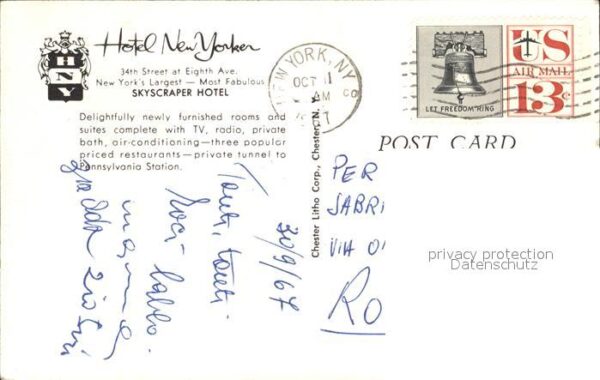 Hotel New Yorker
HNY
34th Street at Eighth Ave.
New York's Largest — Most Fabulous
SKYSCRAPER HOTEL
Delightfully newly furnished rooms and
suites complete with TV, radio, private
bath, air-conditioning—three popular
priced restaurants—private tunnel to
Pennsylvania Station.
NEW YORK, N.Y.
OCT 11
AM
LET FREEDOM RING
US
AIR MAIL
13c
POST CARD
Chester Litho Corp., Chester, N. Y.
30/9/67
Tanti, tanti
PER
SABRI
VIA
RO
privacy protection
Datenschutz